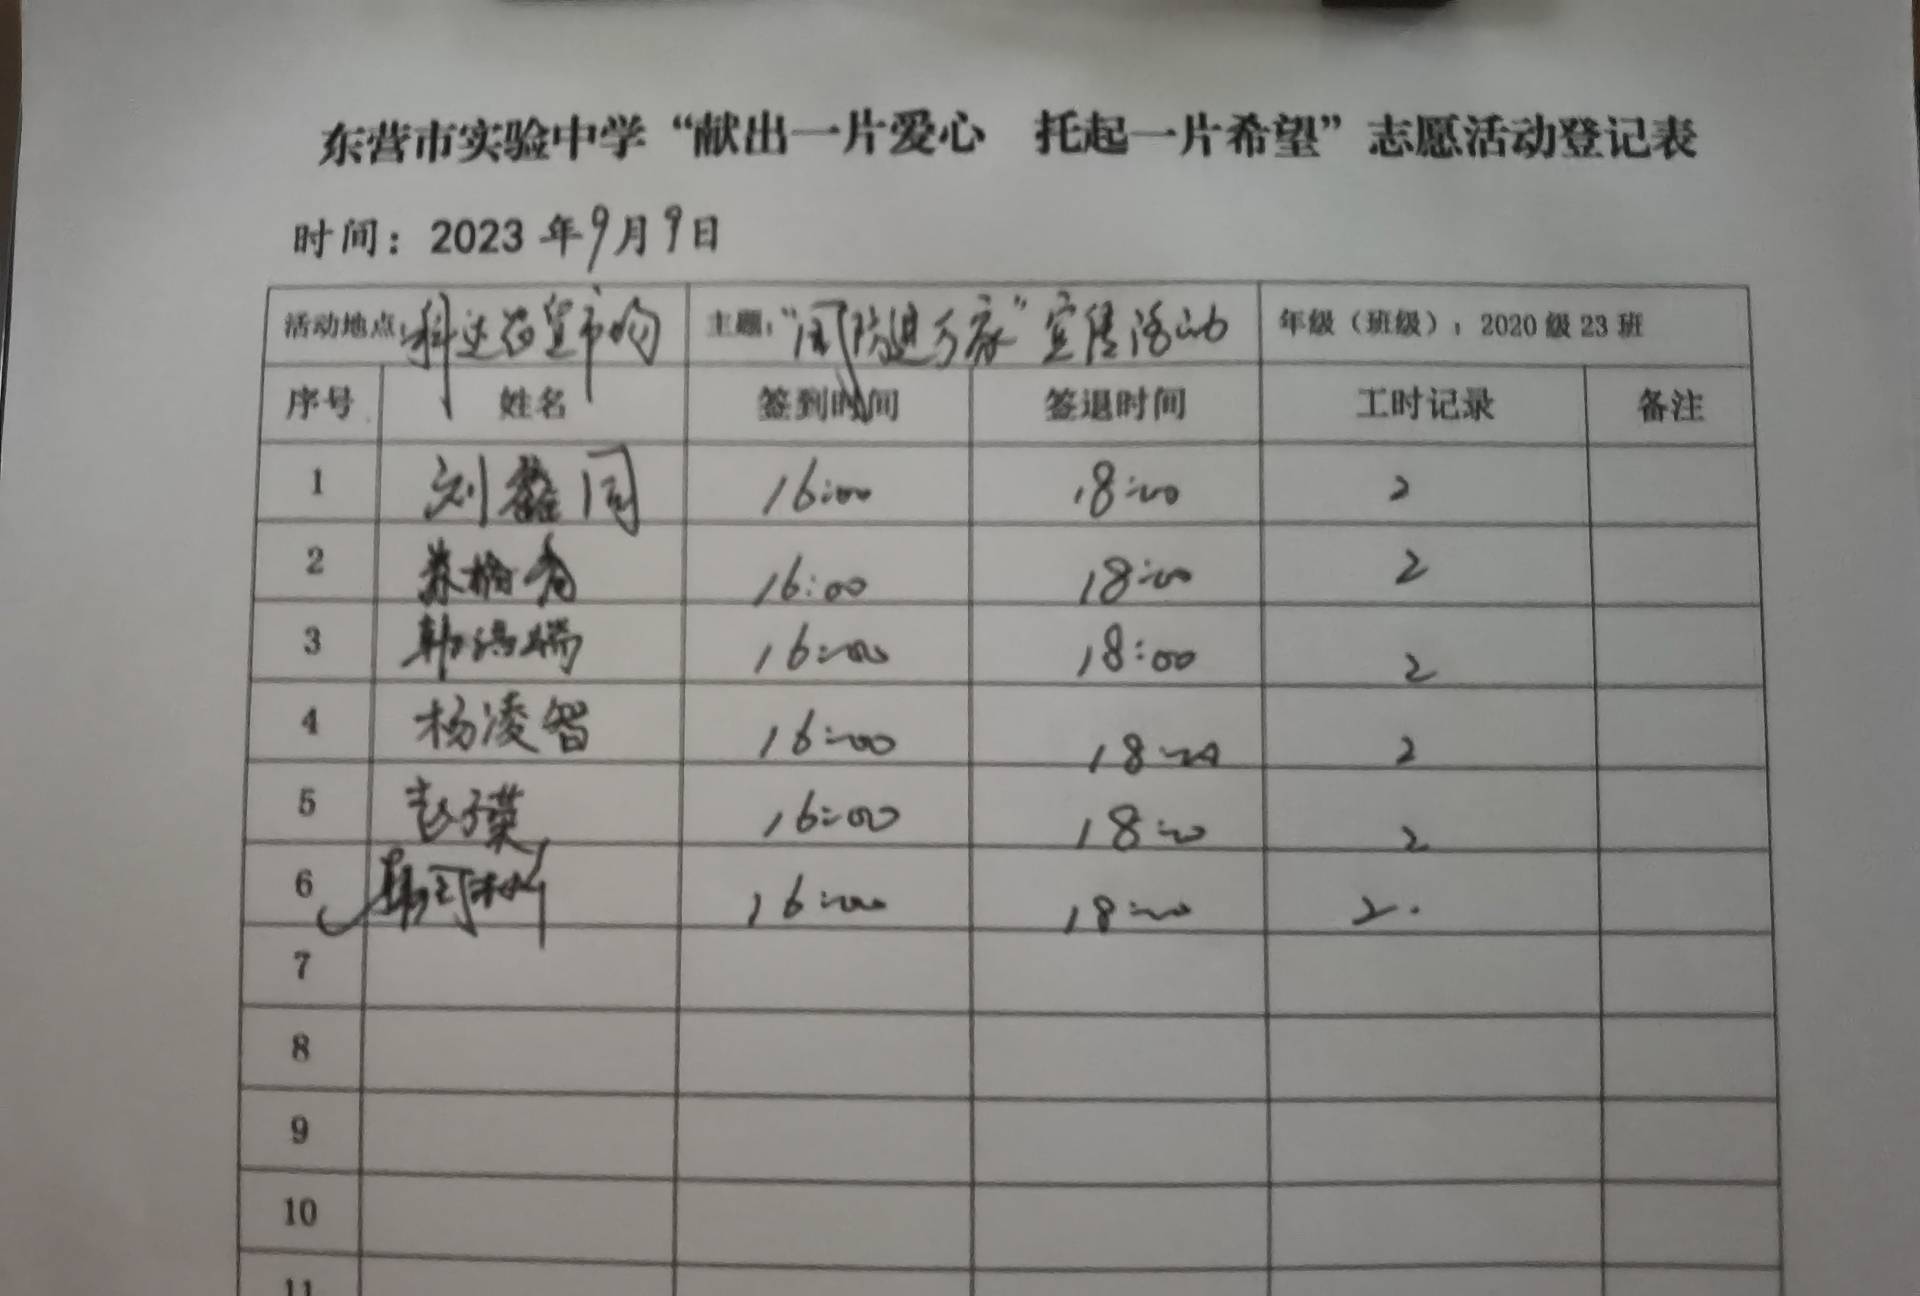 东营市实验中学“献出一片爱心 托起一片希望”志愿活动登记表
时间：2023年9月9日
活动地点： 主题：“国防进万家”宣传活动 年级（班级）：2020级23班
序号 姓名 签到时间 签退时间 工时记录 备注
1 刘鑫同 16:00 18:00 2
2 16:00 18:00 2
3 韩鸿瑞 16:00 18:00 2
4 杨凌智 16:00 18:00 2
5 16:00 18:00 2
6 16:00 18:00 2.
7
8
9
10
11